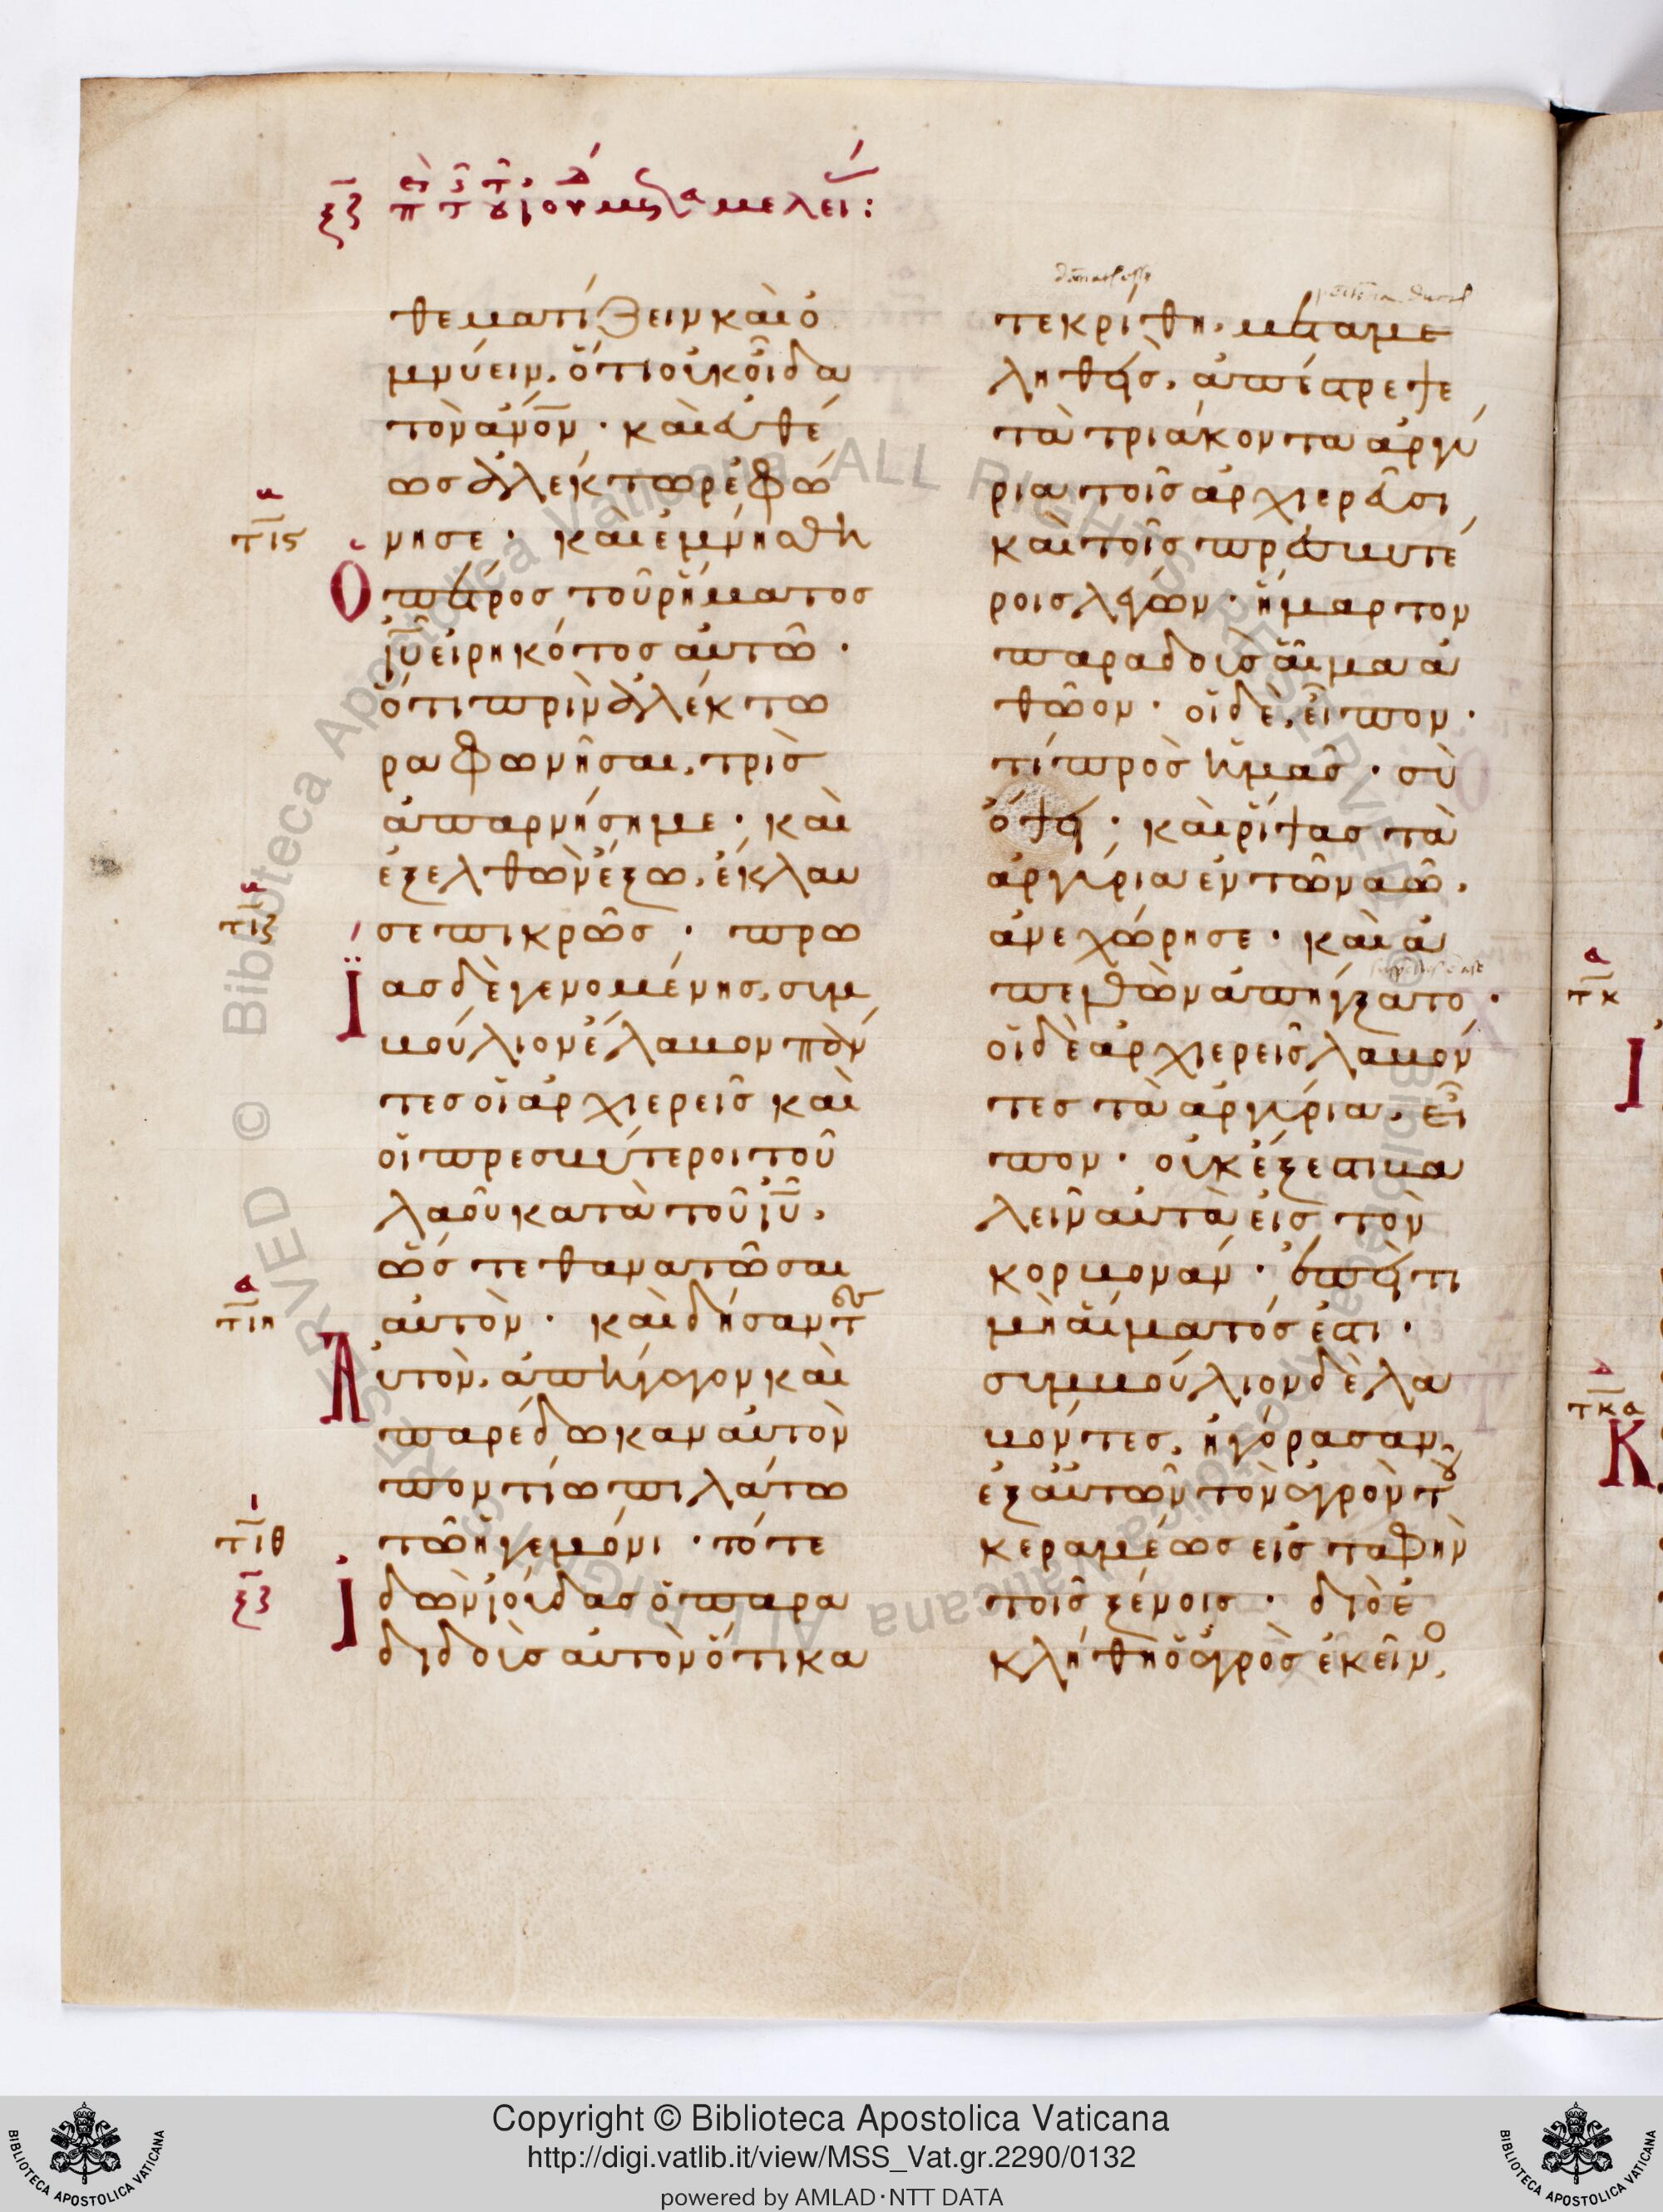 ξζ π τ ιουδ μεταμελει:
θεματίζειν καὶ ὀ
μνύειν, ὅτι οὐκ οἶδα
τὸν ἄνον· καὶ εὐθέ
ως ἀλέκτωρ ἐφώ
νησε· καὶ ἐμνήσθη
τιϛ
Ὁ πέτρος τοῦ ῥήματος
ιυ εἰρηκότος αὐτῶ·
ὅτι πρὶν ἀλέκτω
ρα φωνῆσαι, τρὶς
ἀπαρνήσημε· καὶ
ἐξελθὼν ἔξω, ἔκλαυ
σε πικρῶς· πρω
τιζ
Ϊ ας δὲ γενομένης, συμ
βούλιον ἔλαβον πάν
τες οἱ ἀρχιερεῖς καὶ
οἱ πρεσβύτεροι τοῦ
λαοῦ κατὰ τοῦ ιυ,
ὥστε θανατῶσαι
αὐτὸν· καὶ δήσαντ
τιη
Α ὐτὸν, ἀπήγαγον καὶ
παρέδωκαν αὐτὸν
ποντίω πιλάτω
τῶ ἡγεμόνι· τότε
τιθ
ξζ
Ι δὼν ἰούδας ὁ παρα
διδοὺς αὐτὸν ὅτι κα
τεκρίθη, μεταμε
ληθεὶς, ἀπέστρεψε
τὰ τριάκοντα ἀργύ
ρια τοῖς ἀρχιερεῦσι
καὶ τοῖς πρεσβυτέ
ροις λέγων· ἥμαρτον
παραδοὺς αἷμα ἀ
θῶον· οἱ δὲ, εἶπον·
τί πρὸς ἡμᾶς· σὺ
ὄψει· καὶ ῥίψας τὰ
ἀργύρια ἐν τῶ ναῶ,
ἀνεχώρησε· καὶ ἀ
πελθὼν ἀπήγξατο·
οἱ δὲ ἀρχιερεῖς λαβόν
τες τὰ ἀργύρια, εἶ
πον· οὐκ ἔξεστι βα
λεῖν αὐτὰ εἰς τὸν
κορβονάν· ἐπεὶ τι
μὴ αἵματός ἐστι·
συμβούλιον δὲ λα
βόντες, ἠγόρασαν
ἐξ αὐτῶν τὸν ἀγρὸν τοῦ
κεραμέως εἰς ταφὴν
τοῖς ξένοις· διὸ ἐ
κλήθη ὁ ἀγρὸς ἐκεῖνο,
τκ
Ι
τκα
Κ
Copyright © Biblioteca Apostolica Vaticana
http://digi.vatlib.it/view/MSS_Vat.gr.2290/0132
powered by AMLAD·NTT DATA
BIBLIOTECA APOSTOLICA VATICANA
BIBLIOTECA APOSTOLICA VATICANA